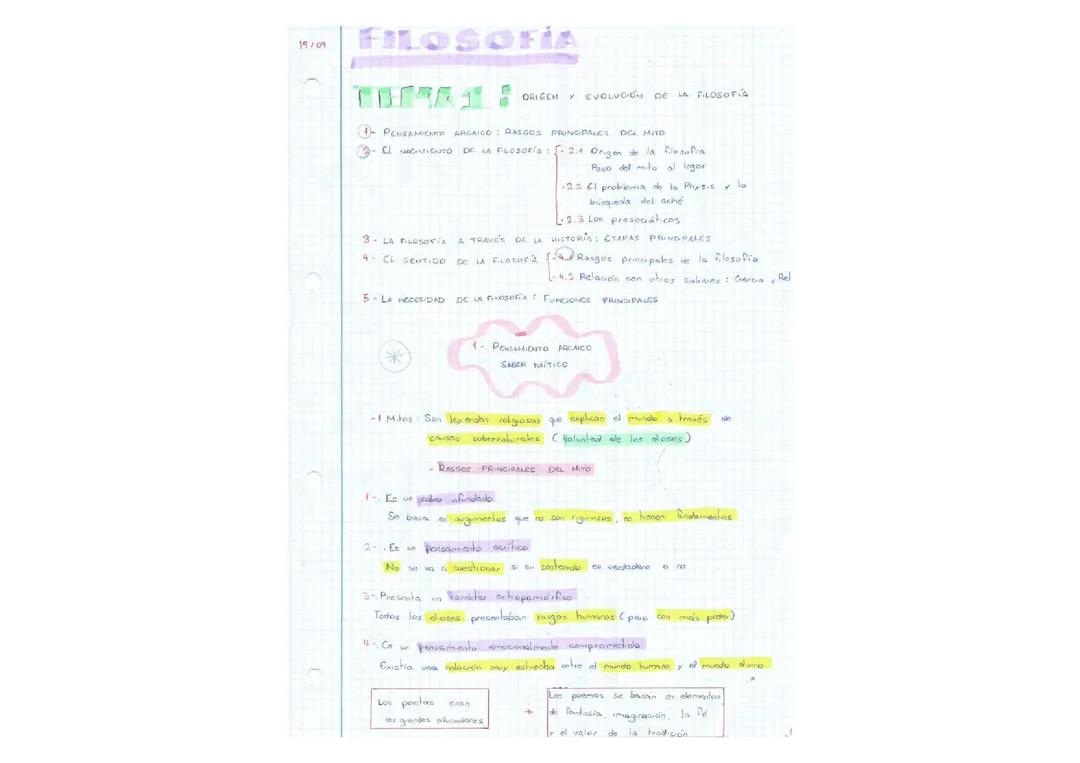 19/09
FILOSOFÍA
TEMA 1: ORIGEN Y EVOLUCIÓN DE LA FILOSOFÍA
1- PENSAMIENTO ARCAICO: RASGOS PRINCIPALES DEL MITO
2- EL NACIMIENTO DE LA FILOSOFÍA: - 2.1 Origen de la filosofía
Paso del mito al logos
-2.2 El problema de la Physis y la
búsqueda del aché
-2.3 Los presocráticos
3- LA FILOSOFÍA A TRAVÉS DE LA HISTORIA: ETAPAS PRINCIPALES
4- EL SENTIDO DE LA FILOSOFÍA -4.1 Rasgos principales de la filosofía
-4.2 Relación con otros saberes: Ciencia, Rel
5- LA NECESIDAD DE LA FILOSOFÍA: FUNCIONES PRINCIPALES
1-. PENSAMIENTO ARCAICO
SABER MÍTICO
- Mitos: Son leyendas religiosas que explican el mundo a través de
causas sobrenaturales (voluntad de los dioses)
- RASGOS PRINCIPALES DEL MITO
1-. Es un saber infundado
Se basa en argumentos que no son rigurosos, no tienen fundamentos
2-. Es un pensamiento acrítico
No se va a cuestionar si su contenido es verdadero o no
3-. Presenta un carácter antropomórfico
Todos los dioses presentaban rasgos humanos (pero con más poder)
4-. Es un pensamiento emocionalmente comprometido
Existía una relación muy estrecha entre el mundo humano y el mundo divino
Los poetas eran
los grandes educadores
Los poemas se basan en elementos
de fantasía, imaginación, la fé
y el valor de la tradición